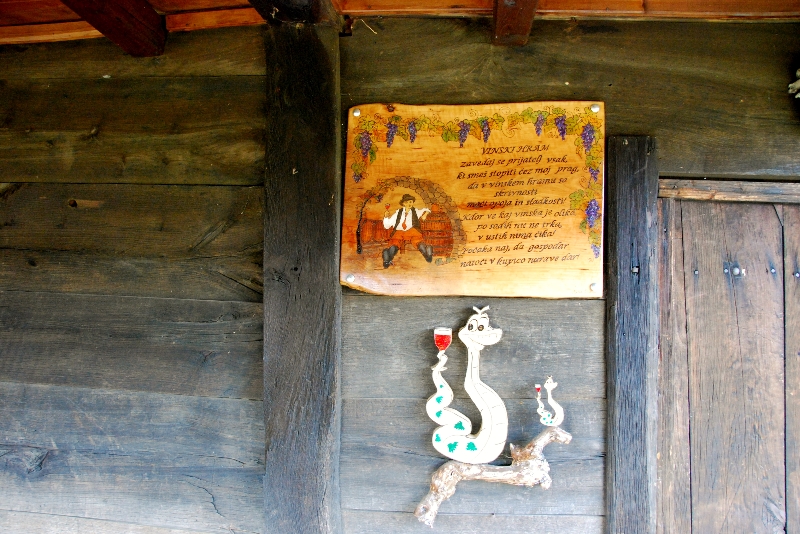 VINSKI HRAM
zavedaj se prijatelj vsak,
ki smeš stopiti čez moj prag,
da v vinskem hramu so
skrivnosti
moči, opoja in sladkosti!
Kdor ve kaj vinska je olika,
po sodih nič ne trka,
v ustih nima čika!
Počaka naj, da gospodar
natoči v kupico narave dar